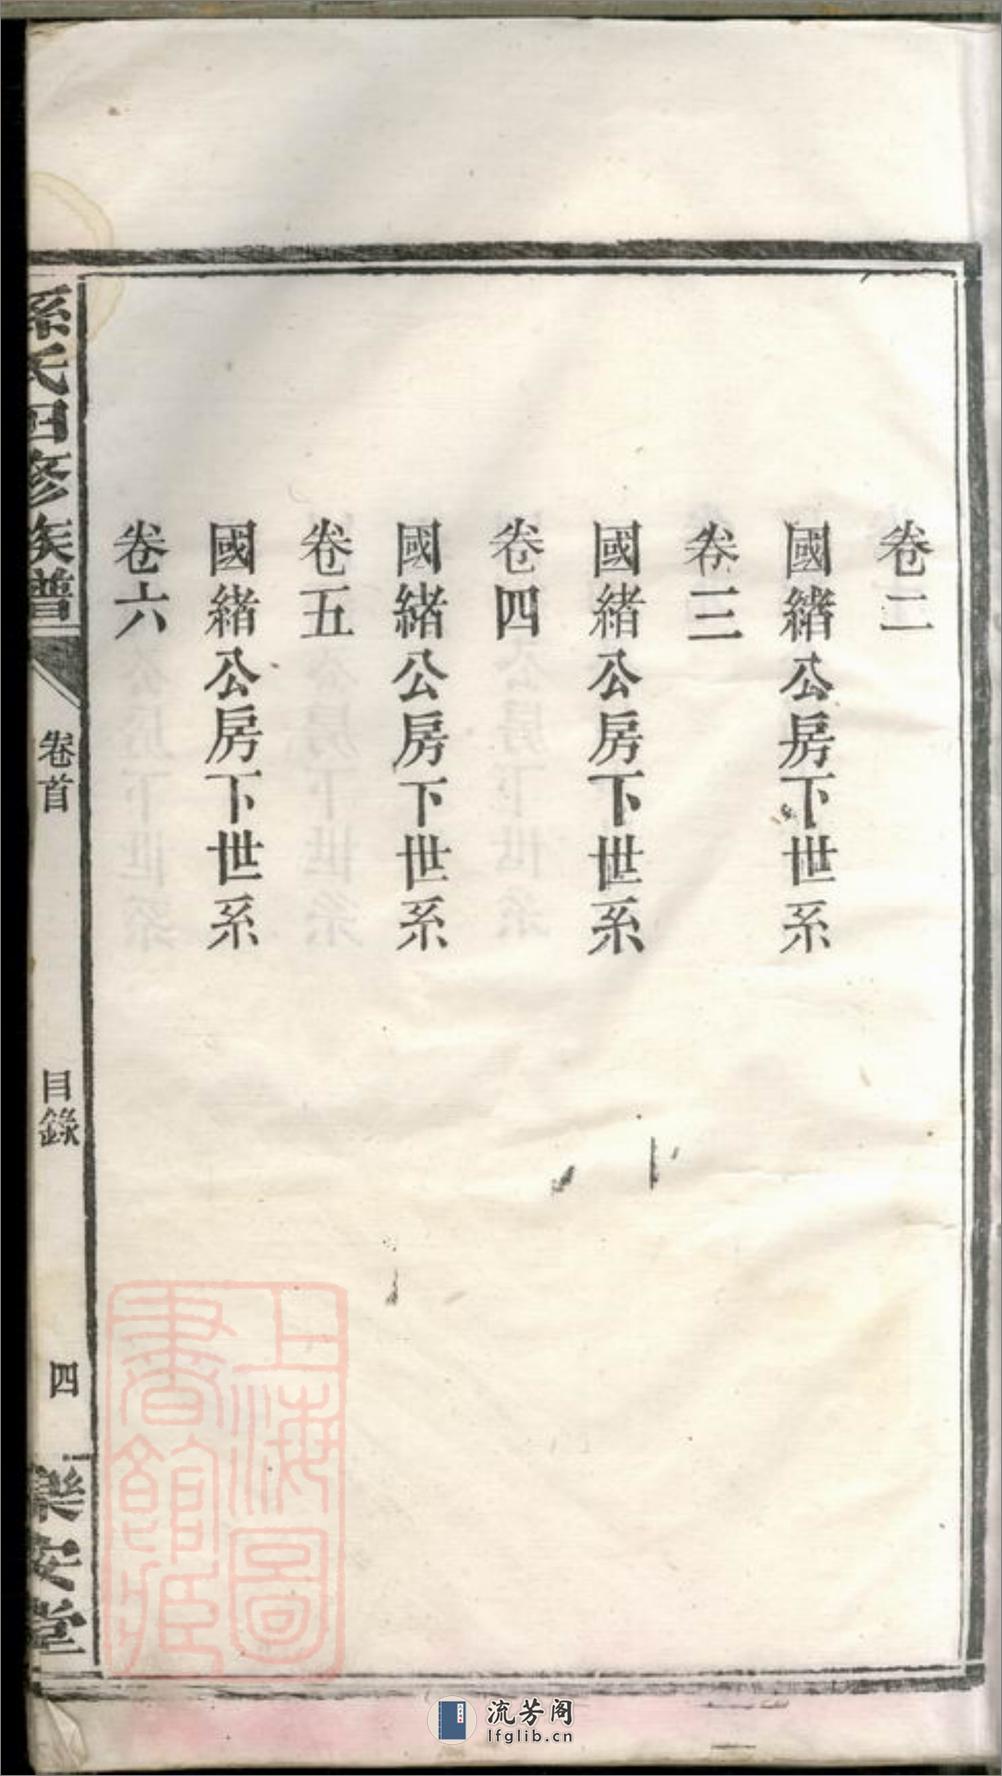 卷二
國緒公房下世系
卷三
國緒公房下世系
卷四
國緒公房下世系
卷五
國緒公房下世系
卷六
孫氏四修族譜
卷首
目錄
四
樂安堂
上海圖
書館藏
流芳阁
lfglib.cn